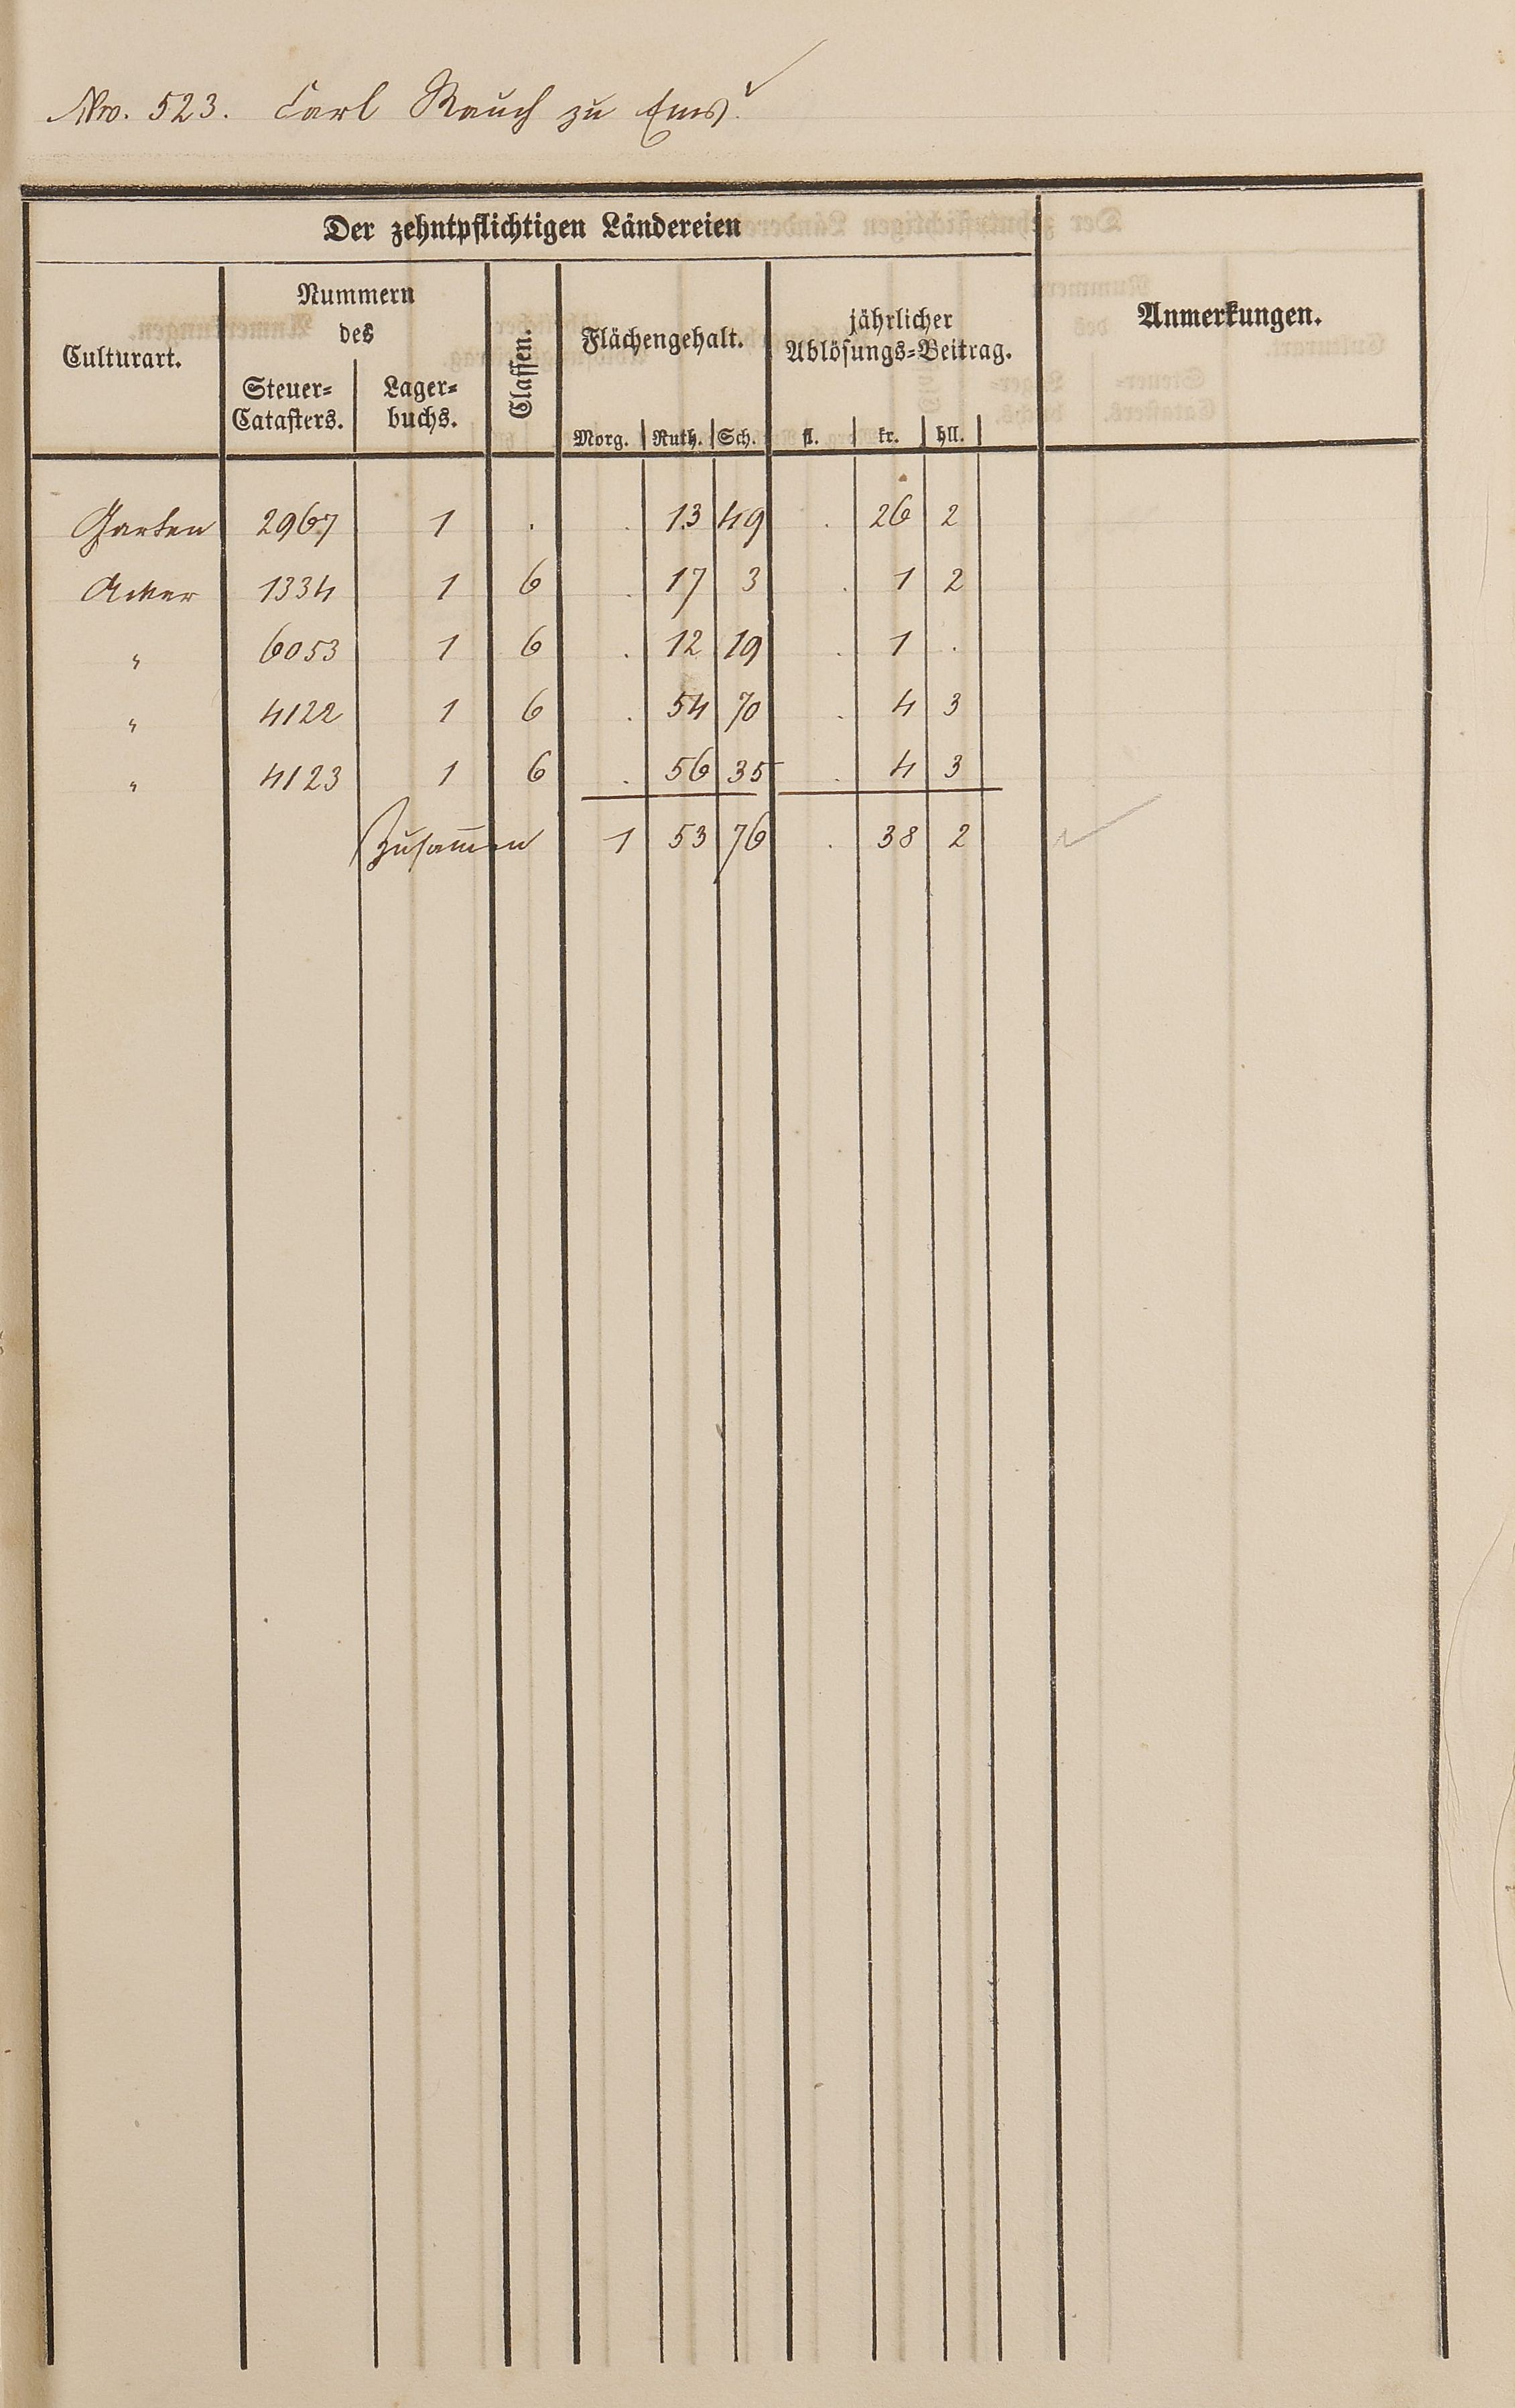 Nro. 523. Carl Rauch zu Ems.
Der zehntpflichtigen Ländereien
Culturart.
Nummern
des
Steuer=
Catasters.
Lager=
buchs.
Classen.
Flächengehalt.
Morg. Ruth. Sch.
jährlicher
Ablösungs=Beitrag.
fl. kr. hll.
Anmerkungen.
Garten 2967 1 . . 13 49 . 26 2
Acker 1334 1 6 . 17 3 . 1 2
" 6053 1 6 . 12 19 . 1 .
" 4122 1 6 . 54 70 . 4 3
" 4123 1 6 . 56 35 . 4 3
Zusammen 1 53 76 . 38 2